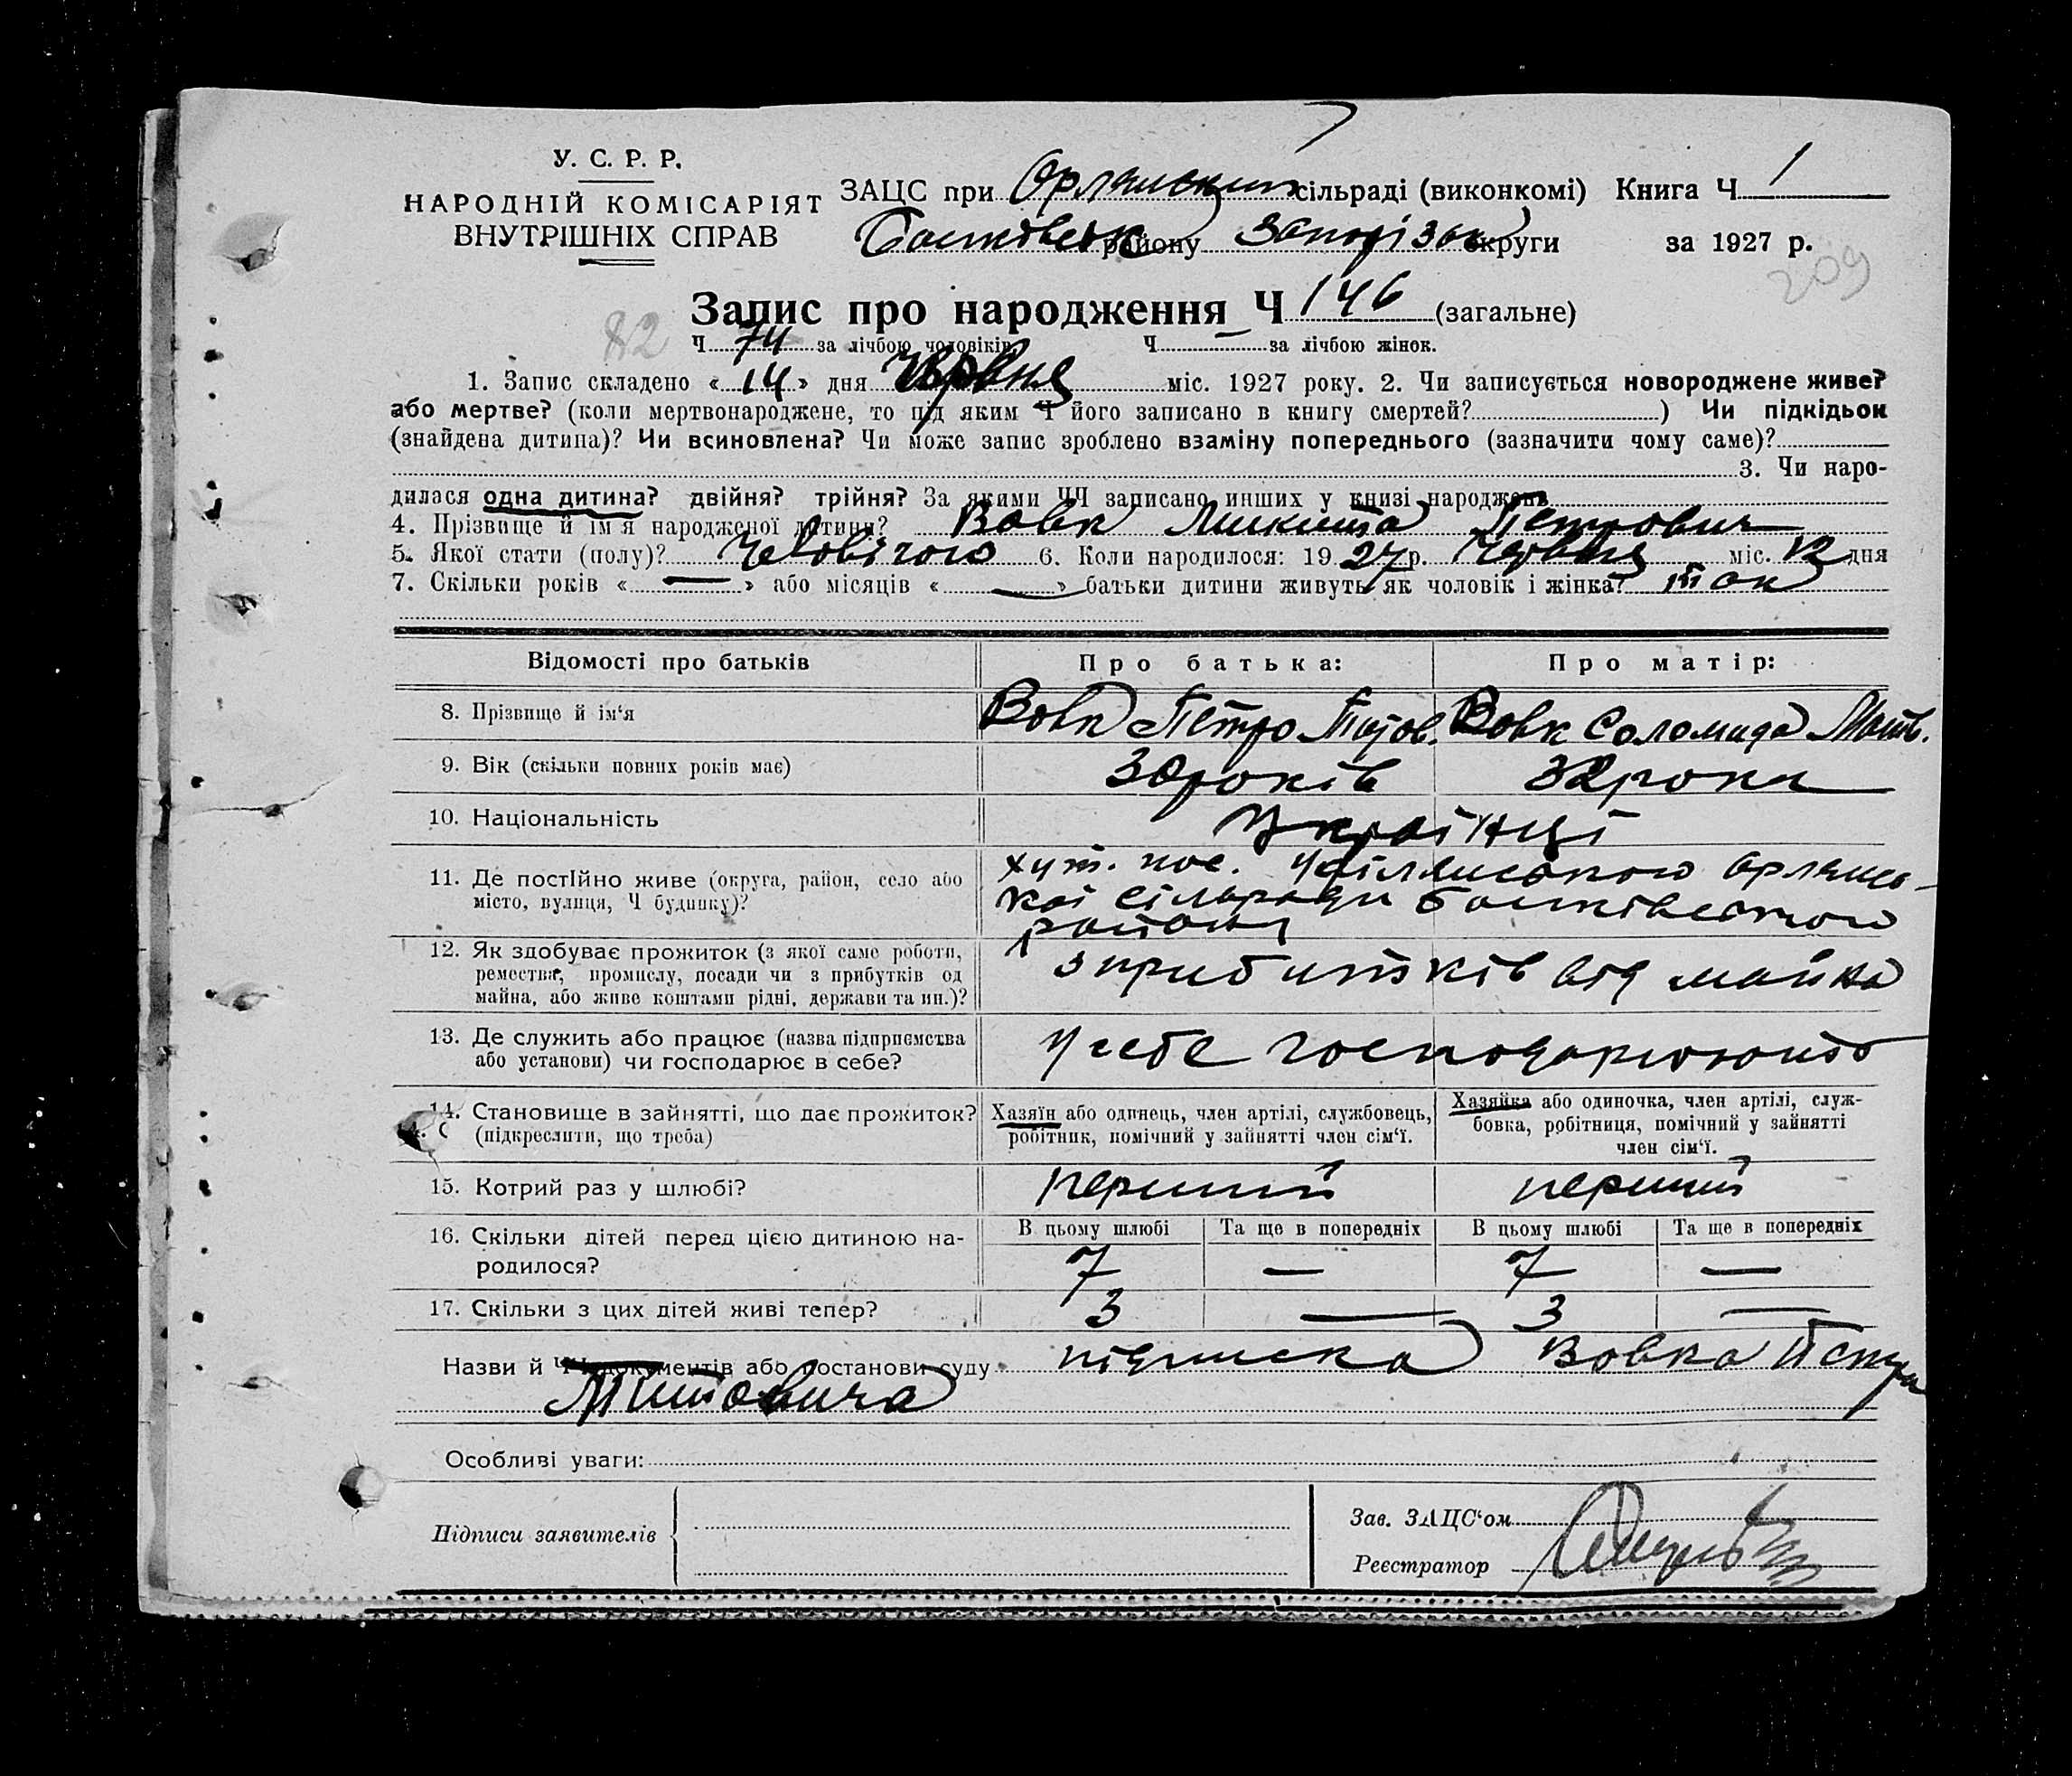 У. С. Р. Р.
НАРОДНІЙ КОМІСАРІЯТ
ВНУТРІШНІХ СПРАВ
ЗАЦС при Орлянський сільраді (виконкомі) Книга Ч 1
району Запорізьк округи за 1927 р.
209
Запис про народження Ч 146 (загальне)
82
Ч 74 за лічбою чоловіків Ч — за лічбою жінок.
1. Запис складено « 14 » дня Червня міс. 1927 року. 2. Чи записується новороджене живе?
або мертве? (коли мертвонароджене, то під яким Ч його записано в книгу смертей? ) Чи підкідьок
(знайдена дитина)? Чи всиновлена? Чи може запис зроблено взаміну попереднього (зазначити чому саме)?
3. Чи наро-
дилася одна дитина? двійня? трійня? За якими ЧЧ записано инших у книзі народжень
4. Прізвище й ім'я народженої дитини? Вовк Микита Петрович
5. Якої стати (полу)? Чоловічого 6. Коли народилося: 19 27 р. Червня міс. 12 дня
7. Скільки років « — » або місяців « — » батьки дитини живуть як чоловік і жінка? так
Відомості про батьків
Про батька:
Про матір:
8. Прізвище й ім'я
Вовк Петро Титов.
Вовк Соломида Матв.
9. Вік (скільки повних років має)
30 років
32 роки
10. Національність
Українці
11. Де постійно живе (округа, район, село або
місто, вулиця, Ч будинку)?
хут. пос. Орлянсь-
кої сільради
района
12. Як здобуває прожиток (з якої саме роботи,
ремества, промислу, посади чи з прибутків од
майна, або живе коштами рідні, держави та ин.)?
з прибитків від майна
13. Де служить або працює (назва підприємства
або установи) чи господарює в себе?
У себе господарюють
14. Становище в зайнятті, що дає прожиток?
(підкреслити, що треба)
Хазяїн або одинець, член артілі, службовець,
робітник, помічний у зайнятті член сім'ї.
Хазяйка або одиночка, член артілі, служ-
бовка, робітниця, помічний у зайнятті
член сім'ї.
15. Котрий раз у шлюбі?
перший
перший
16. Скільки дітей перед цією дитиною на-
родилося?
В цьому шлюбі
Та ще в попередніх
В цьому шлюбі
Та ще в попередніх
7 — 7 —
17. Скільки з цих дітей живі тепер?
3 — 3 —
Назви й ЧЧ документів або постанови суду підписка Вовка Петра
Титовича
Особливі уваги:
Підписи заявителів
Зав. ЗАЦС'ом
Реєстратор